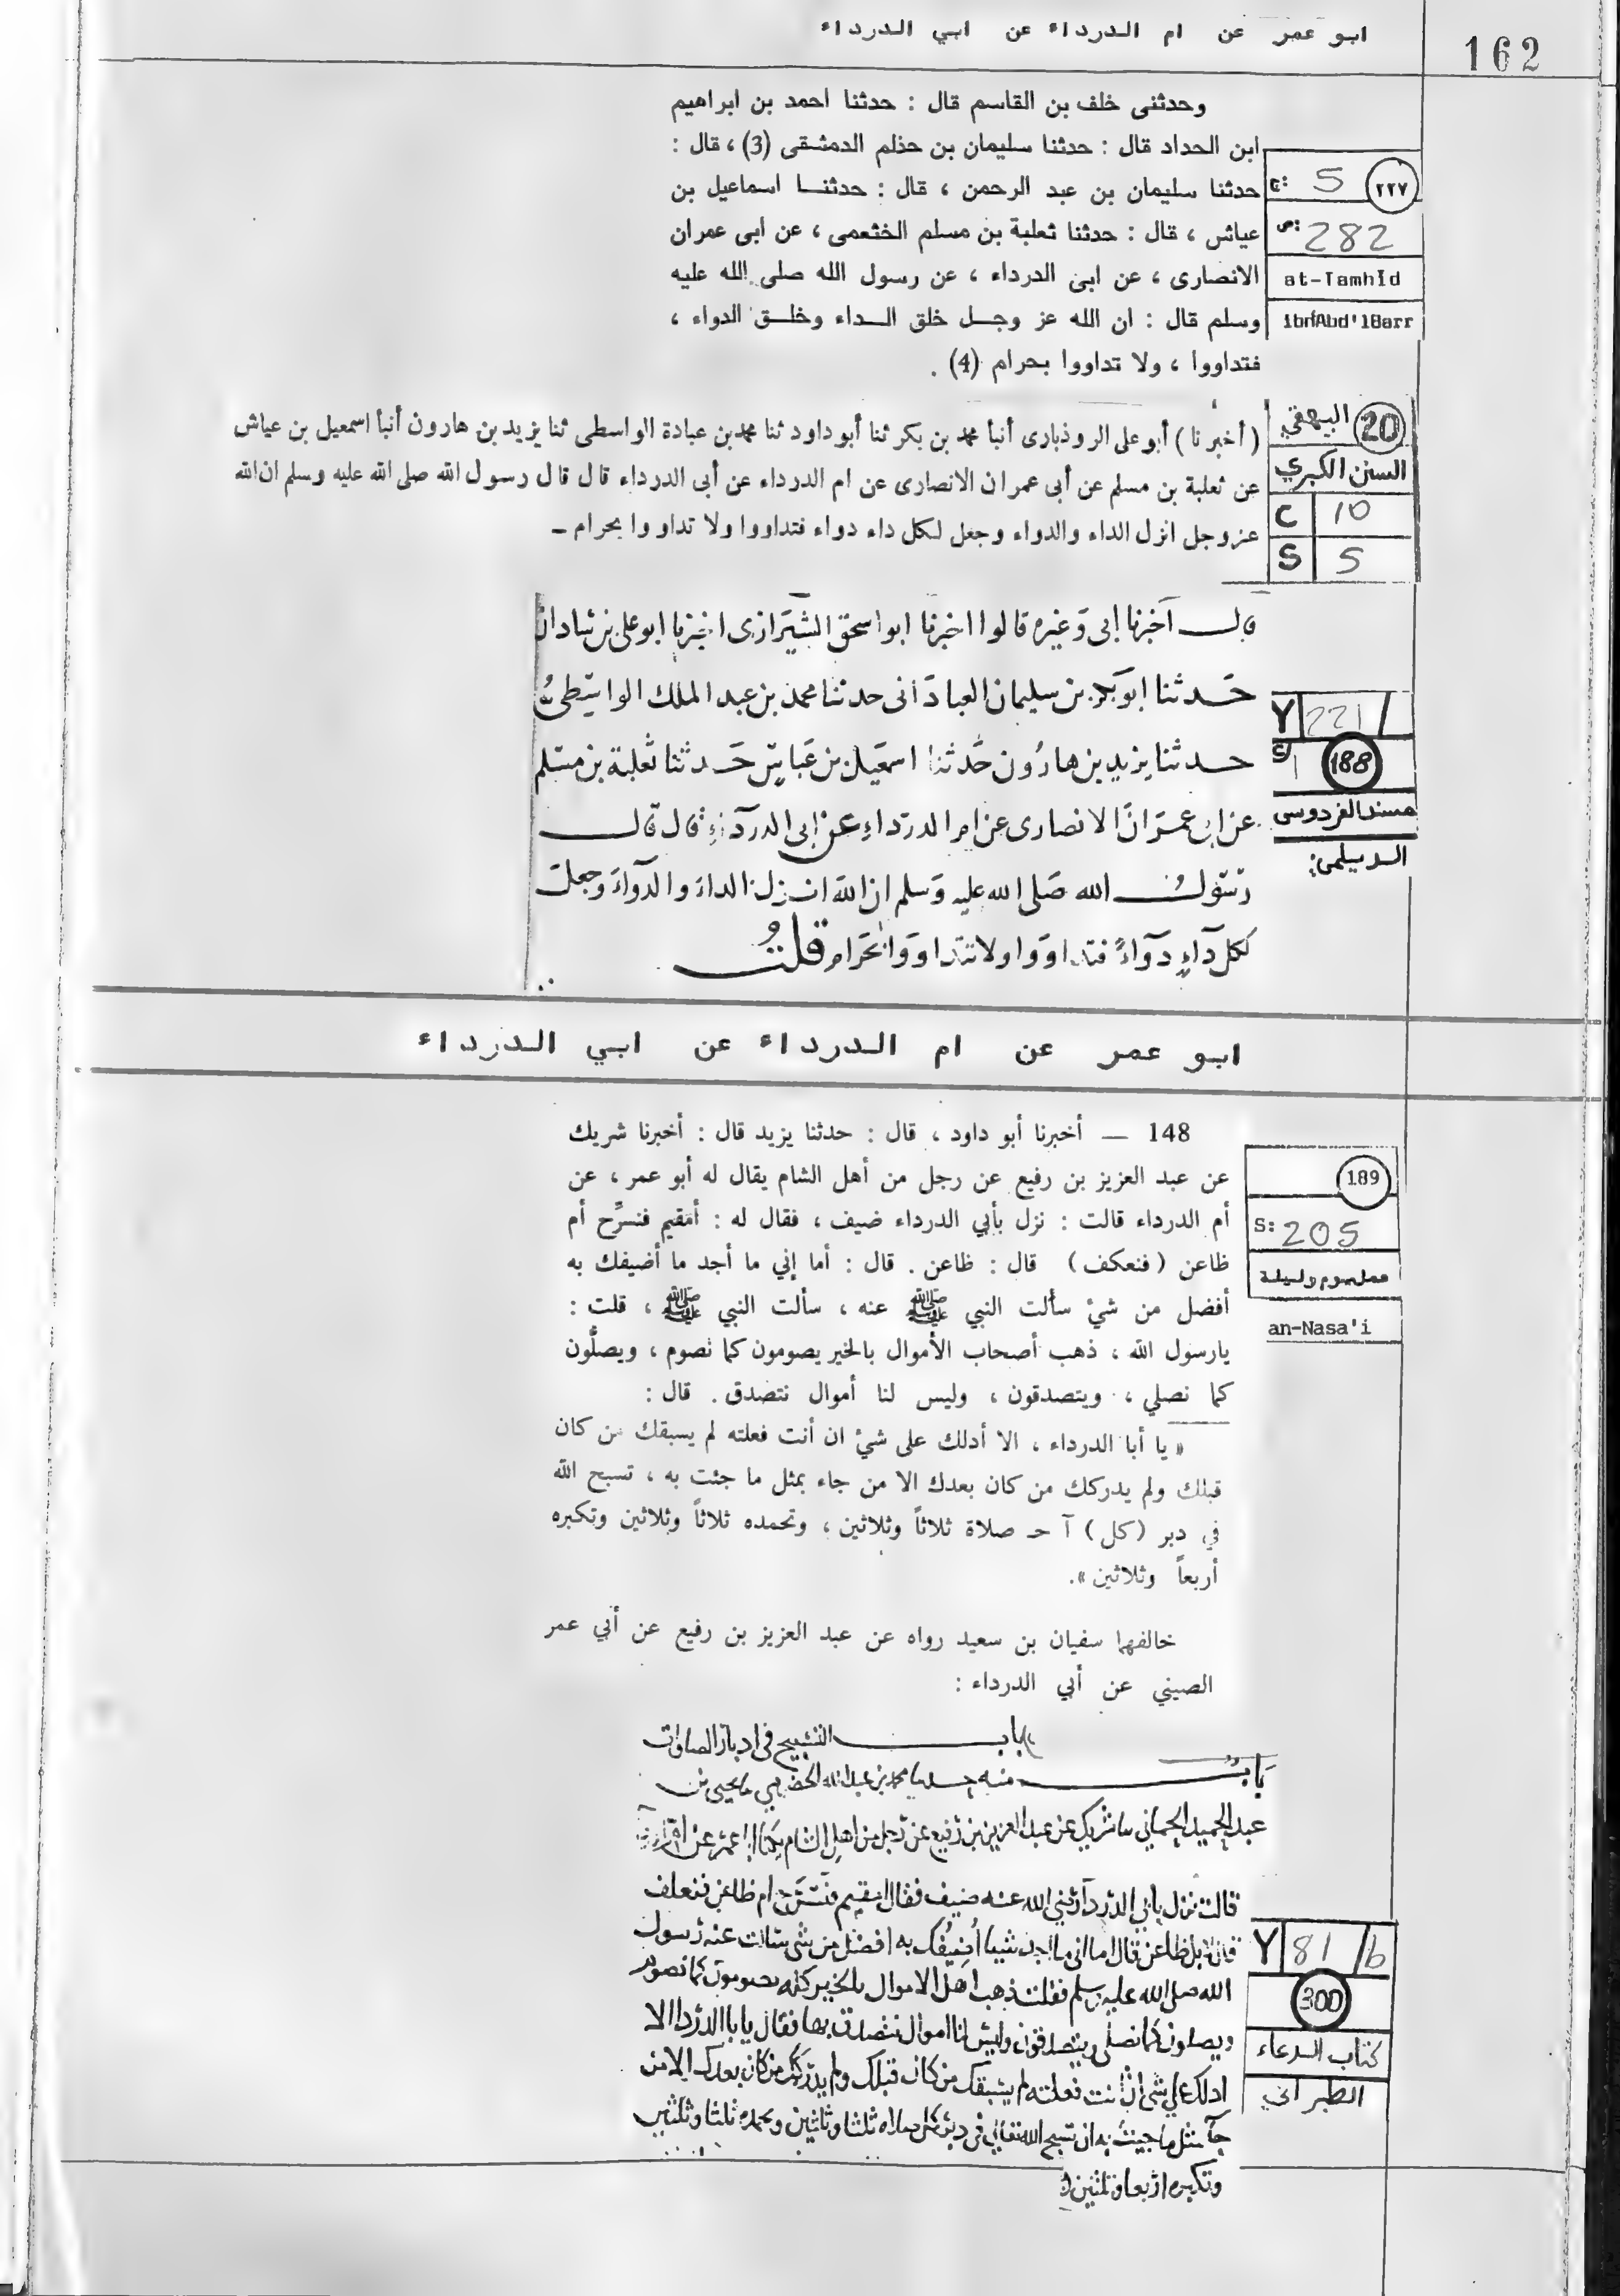 ابو عمر عن ام الدرداء عن ابي الدرداء
162
وحدثنى خلف بن القاسم قال : حدثنا احمد بن ابراهيم
ابن الحداد قال : حدثنا سليمان بن حذلم الدمشقى (3) ، قال :
حدثنا سليمان بن عبد الرحمن ، قال : حدثنا اسماعيل بن
عياش ، قال : حدثنا ثعلبة بن مسلم الخثعمى ، عن ابى عمران
الانصارى ، عن ابى الدرداء ، عن رسول الله صلى الله عليه
وسلم قال : ان الله عز وجل خلق الداء وخلق الدواء ،
فتداووا ، ولا تداووا بحرام (4) .
٢٢٧
ج: 5
ص: 282
at-Tamhîd
ibn Abd'lBarr
(أخبرنا) أبو على الروذبارى أنبأ محمد بن بكر ثنا أبو داود ثنا محمد بن عبادة الواسطى ثنا يزيد بن هارون أنبأ اسمعيل بن عياش
عن ثعلبة بن مسلم عن أبى عمران الانصارى عن ام الدرداء عن أبى الدرداء قال قال رسول الله صلى الله عليه وسلم ان الله
عزوجل انزل الداء والدواء وجعل لكل داء دواء فتداووا ولا تداووا بحرام -
20 البيهقي
السنن الكبري
C 10
S 5
قال اخبرنا ابى وغيره قالوا اخبرنا ابو اسحق الشيرازى اخبرنا ابو على بن شاذان
حدثنا ابو بكر بن سليمان العباداني حدثنا محمد بن عبد الملك الواسطي
حدثنا يزيد بن هارون حدثنا اسمعيل بن عياش حدثنا ثعلبة بن مسلم
عن ابى عمران الانصارى عن ام الدرداء عن ابى الدرداء قال قال
رسول الله صلى الله عليه وسلم ان الله انزل الداء والدواء وجعل
لكل داء دواء فتداووا ولا تتداووا بحرام قلت
Y 221 /
S 188
مسند الفردوسى
الديلمي:
ابو عمر عن ام الدرداء عن ابي الدرداء
148 — أخبرنا أبو داود ، قال : حدثنا يزيد قال : أخبرنا شريك
عن عبد العزيز بن رفيع عن رجل من أهل الشام يقال له أبو عمر ، عن
أم الدرداء قالت : نزل بأبي الدرداء ضيف ، فقال له : أمقيم فنسرِّح أم
ظاعن (فنعكف) قال : ظاعن . قال : أما إني ما أجد ما أضيفك به
أفضل من شيْ سألت النبي ﷺ عنه ، سألت النبي ﷺ ، قلت :
يارسول الله ، ذهب أصحاب الأموال بالخير يصومون كما نصوم ، ويصلُّون
كما نصلي ، ويتصدقون ، وليس لنا أموال نتصدق . قال :
« يا أبا الدرداء ، الا أدلك على شيْ ان أنت فعلته لم يسبقك من كان
قبلك ولم يدركك من كان بعدك الا من جاء بمثل ما جئت به ، تسبح الله
في دبر (كل) آ حـ صلاة ثلاثاً وثلاثين ، وتحمده ثلاثاً وثلاثين وتكبره
أربعاً وثلاثين » .
خالفهما سفيان بن سعيد رواه عن عبد العزيز بن رفيع عن أبي عمر
الصيني عن أبي الدرداء :
189
S: 205
عمل يوم وليلة
an-Nasa'i
باب التسبيح في ادبار الصلوات
باب منه حدثنا محمد بن عبد الله الحضرمي ثنا يحيى بن
عبد الحميد الحماني ثنا شريك عن عبد العزيز بن رفيع عن رجل من اهل الشام يكنا ابا عمر عن ام
قالت نزل بابي الدرداء رضي الله عنه ضيف فقال امقيم فنسرح ام ظاعن فنعلف
قال بل ظاعن قال اما اني ما اجد شيا اضيفك به افضل من شى سالت عنه رسول
الله صلى الله عليه وسلم فقلت ذهب اهل الاموال بالخير كله يصومون كما نصوم
ويصلون كما نصلي ويتصدقون وليس لنا اموال نتصدق بها فقال يا ابا الدردا الا
ادلك على شى ان انت فعلته لم يسبقك من كان قبلك ولم يدركك من كان بعدك الا من
جا بمثل ما جيت به ان تسبح الله تعالى في دبر كل صلاه ثلثا وثلثين وتحمده ثلثا وثلثين
وتكبره اربعا وثلثين
Y 81 / b
300
كتاب الدعاء
الطبراني